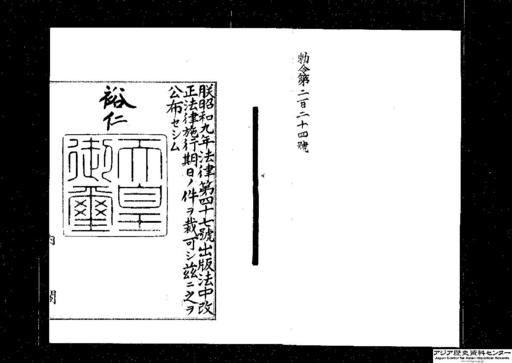 勅令第二百二十四號
朕昭和九年法律第四十七號出版法中改
正法律施行期日ノ件ヲ裁可シ茲ニ之ヲ
公布セシム
裕仁
天皇
御璽
内閣
アジア歴史資料センター
Japan Center for Asian Historical Records